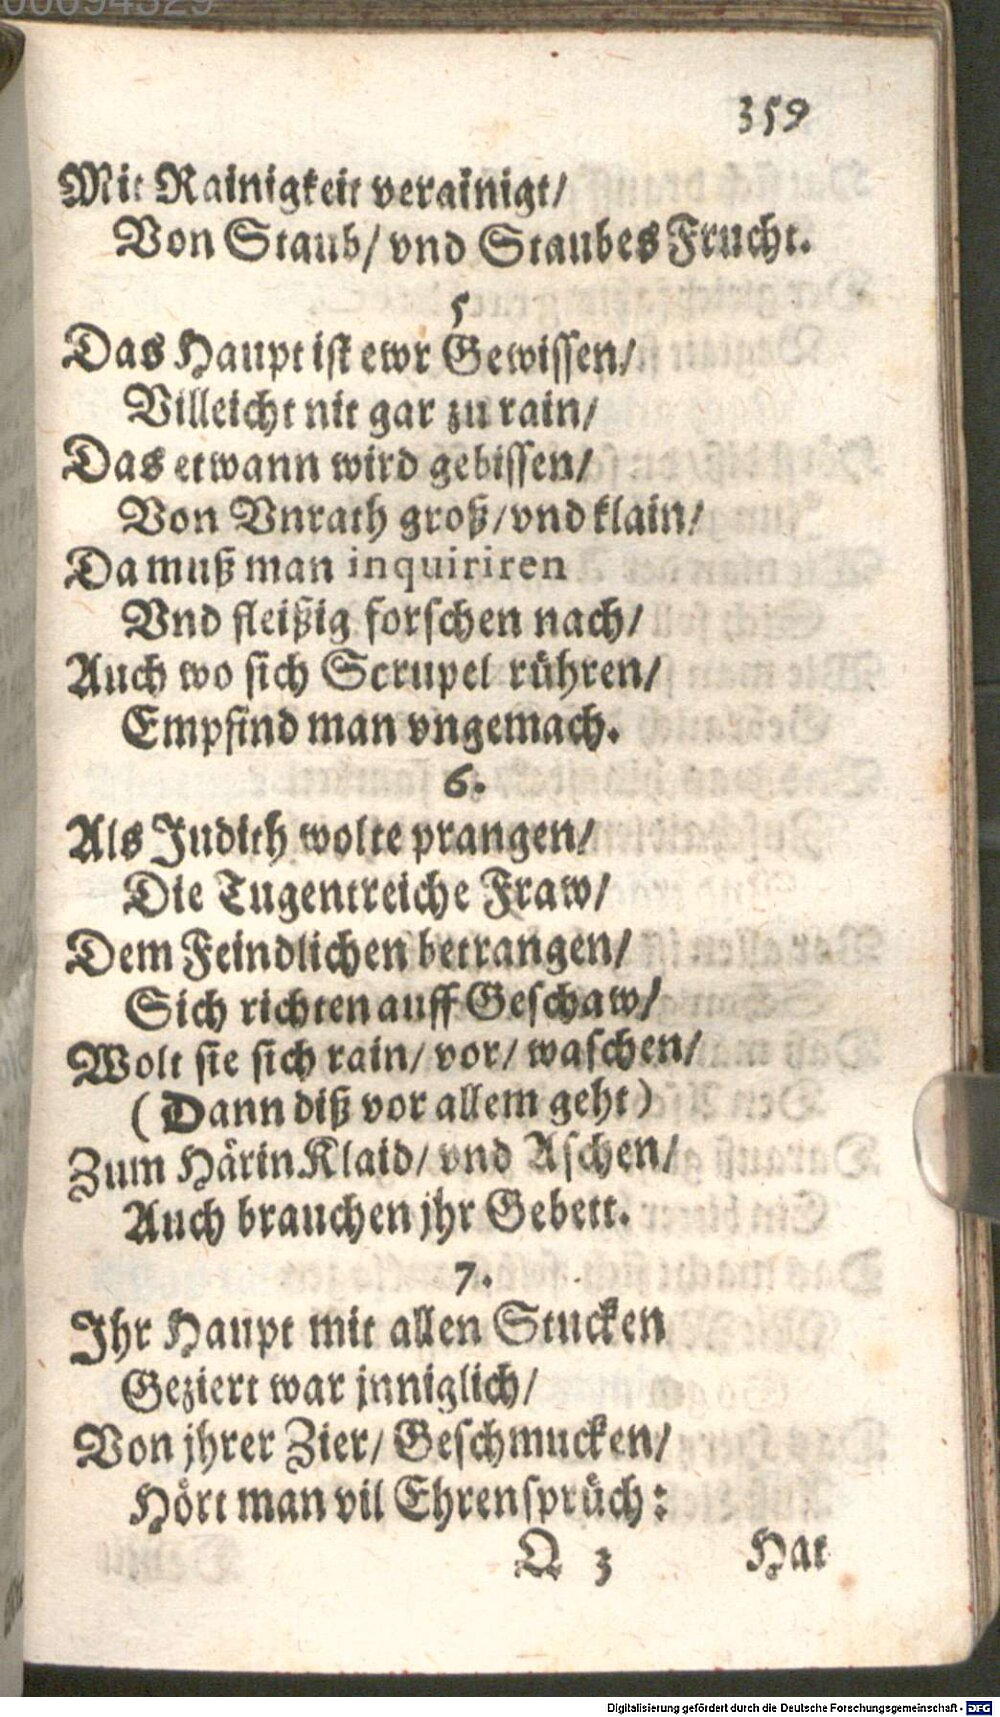 359
Mit Rainigkeit verainigt/
Von Staub/ vnd Staubes Frucht.
5
Das Haupt ist ewr Gewissen/
Villeicht nit gar zu rain/
Das etwann wird gebissen/
Von Vnrath groß/ vnd klain/
Da muß man inquiriren
Vnd fleißig forschen nach/
Auch wo sich Scrupel rühren/
Empfind man vngemach.
6.
Als Judith wolte prangen/
Die Tugentreiche Fraw/
Dem Feindlichen betrangen/
Sich richten auff Geschaw/
Wolt sie sich rain/ vor/ waschen/
(Dann diß vor allem geht)
Zum Härin Klaid/ vnd Aschen/
Auch brauchen jhr Gebett.
7.
Ihr Haupt mit allen Stucken
Geziert war jnniglich/
Von jhrer Zier/ Geschmucken/
Hört man vil Ehrensprüch:
Q 3 Hat
Digitalisierung gefördert durch die Deutsche Forschungsgemeinschaft - DFG